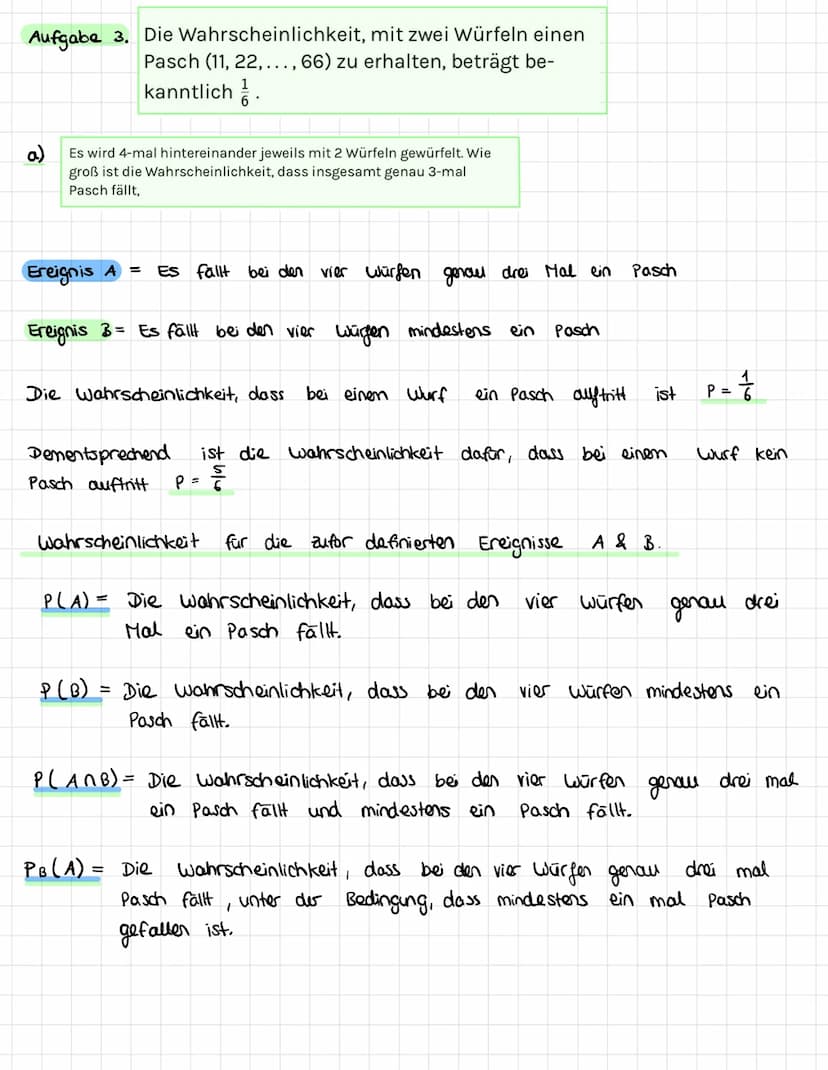 Aufgabe 3. Die Wahrscheinlichkeit, mit zwei Würfeln einen
Pasch (11, 22,..., 66) zu erhalten, beträgt be-
kanntlich 1/6 .
a) Es wird 4-mal hintereinander jeweils mit 2 Würfeln gewürfelt. Wie
groß ist die Wahrscheinlichkeit, dass insgesamt genau 3-mal
Pasch fällt,
Ereignis A = Es fällt bei den vier Würfen genau drei Mal ein Pasch
Ereignis B = Es fällt bei den vier Würfen mindestens ein Pasch
Die Wahrscheinlichkeit, dass bei einem Wurf ein Pasch auftritt ist P = 1/6
Dementsprechend ist die Wahrscheinlichkeit dafür, dass bei einem Wurf kein
Pasch auftritt P = 5/6
Wahrscheinlichkeit für die zufor definierten Ereignisse A & B.
P(A) = Die Wahrscheinlichkeit, dass bei den vier Würfen genau drei
Mal ein Pasch fällt.
P(B) = Die Wahrscheinlichkeit, dass bei den vier Würfen mindestens ein
Pasch fällt.
P(A∩B) = Die Wahrscheinlichkeit, dass bei den vier Würfen genau drei mal
ein Pasch fällt und mindestens ein Pasch fällt.
P_B(A) = Die Wahrscheinlichkeit, dass bei den vier Würfen genau drei mal
Pasch fällt, unter der Bedingung, dass mindestens ein mal Pasch
gefallen ist.